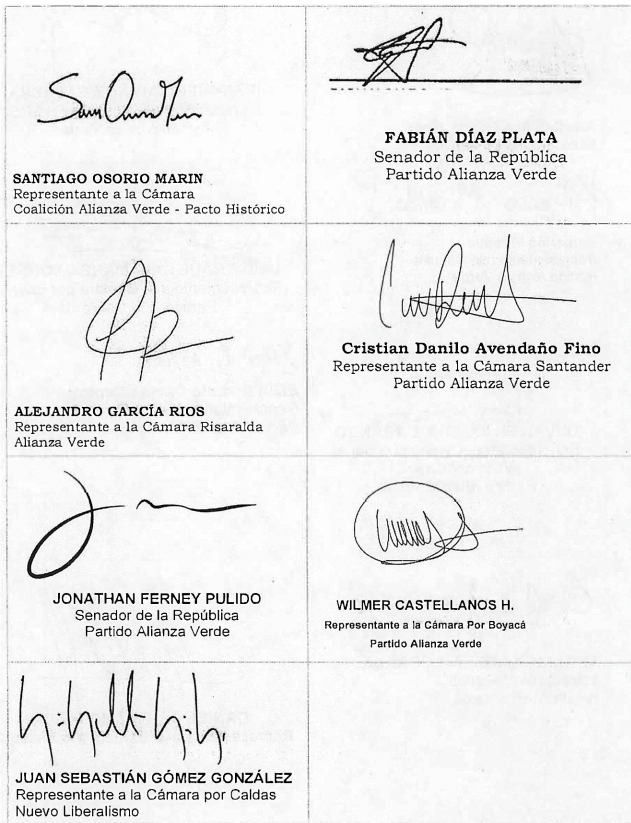 SANTIAGO OSORIO MARIN
Representante a la Cámara
Coalición Alianza Verde - Pacto Histórico
FABIÁN DÍAZ PLATA
Senador de la República
Partido Alianza Verde
ALEJANDRO GARCÍA RIOS
Representante a la Cámara Risaralda
Alianza Verde
Cristian Danilo Avendaño Fino
Representante a la Cámara Santander
Partido Alianza Verde
JONATHAN FERNEY PULIDO
Senador de la República
Partido Alianza Verde
WILMER CASTELLANOS H.
Representante a la Cámara Por Boyacá
Partido Alianza Verde
JUAN SEBASTIÁN GÓMEZ GONZÁLEZ
Representante a la Cámara por Caldas
Nuevo Liberalismo